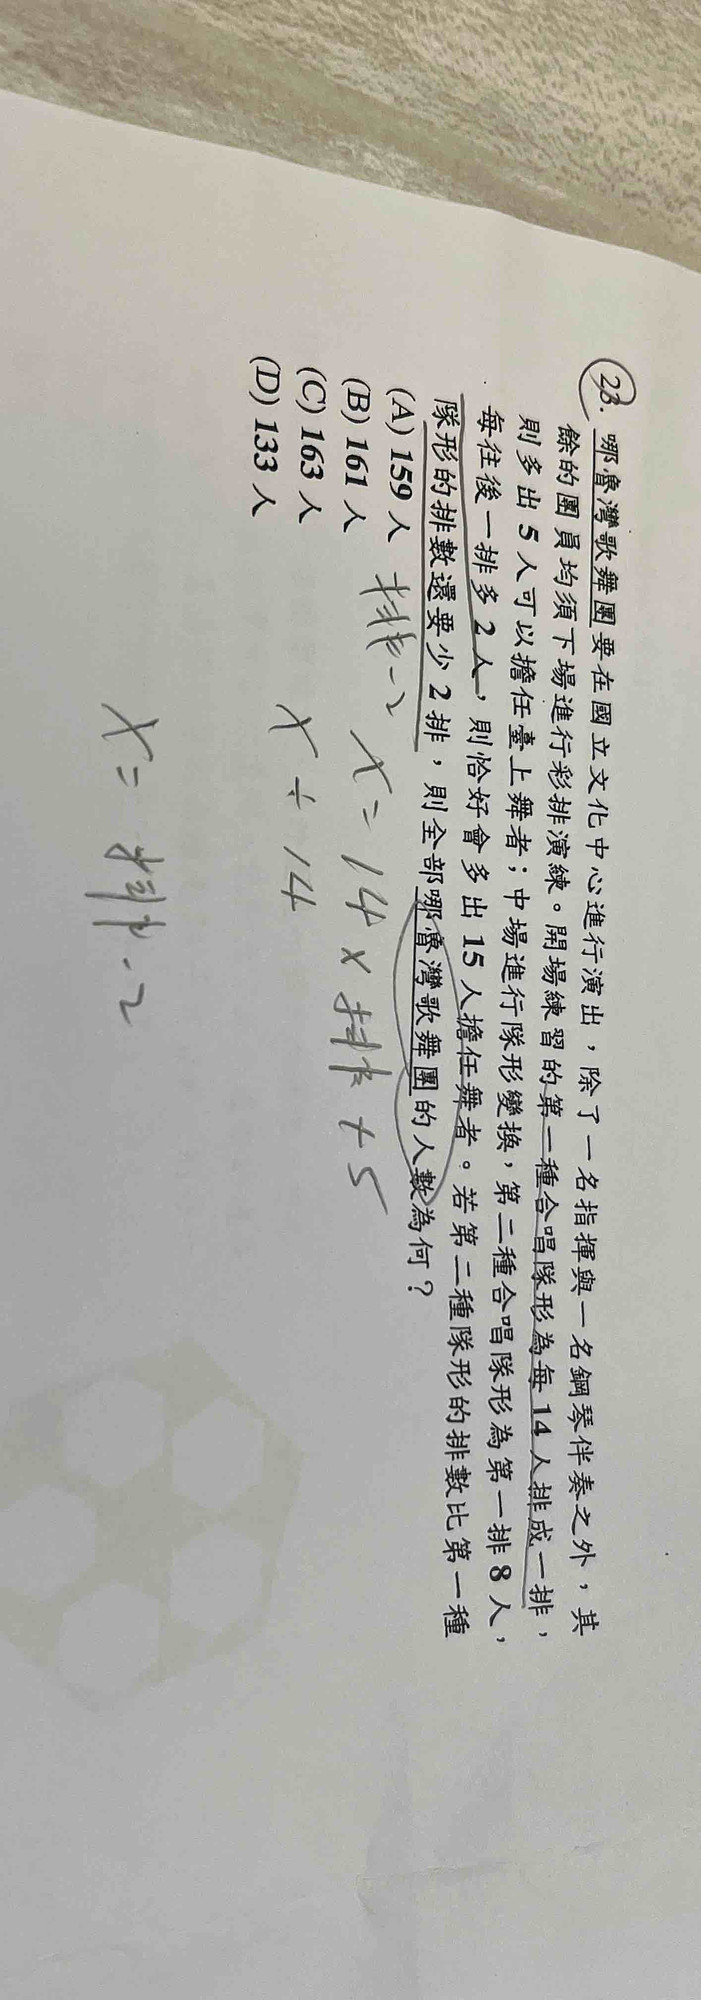 23. 哪魯灣歌舞團要在國立文化中心進行演出，除了一名指揮與一名鋼琴伴奏之外，其
餘的團員均須下場進行彩排演練。開場練習的第一種合唱隊形為每 14 人排成一排，
則多出 5 人可以擔任臺上舞者；中場進行隊形變換，第二種合唱隊形為第一排 8 人，
每往後一排多 2 人，則恰好會多出 15 人擔任舞者。若第二種隊形的排數比第一種
隊形的排數還要少 2 排，則全部哪魯灣歌舞團的人數為何？
(A) 159 人
(B) 161 人
(C) 163 人
(D) 133 人
排-2
x = 14 × 排 + 5
x ÷ 14
x = 排-2